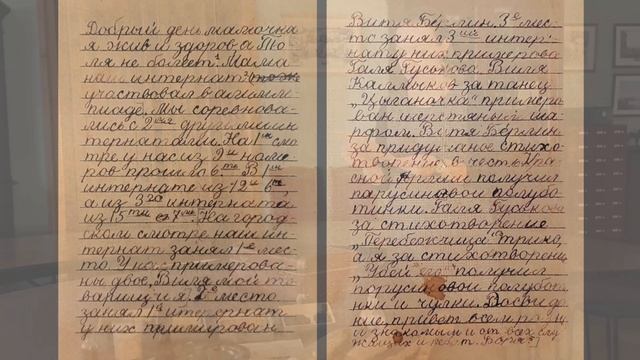 Добрый день мамочка
я жив и здоров, а То
ля не болеет. Мама
наш интернат тож
участвовал в алимп-
пиаде. Мы соревнова-
лись с 2мя другими ин
тернатами. На 1ом смо
тре у нас из 9и номе
ров прошло 6ть. В 1ом
интернате из 12и 6ть,
а из 3го интерната
из 15ти 7мь. На город-
ском смотре наш ин-
тернат занял 1е мес-
то. У нас примирова-
ны двое, Виля мой то
варищ и я. 2е место
занял 1й интернат
у них примирован
Витя Берлин. 3е мес-
то занял 3ий интер-
нат у них примирова
Галя Гуськова. Виля
Калмыков за танец
„Цыганочка" примиро
ван шерстяным ша-
рфом. Витя Берлин
за придуманое стихо-
творение в честь Кра-
сной Армии получил
парусиновои полубо-
тинки. Галя Гуськова
за стихотворение
„Перебежчица" трико,
а я за стихотворение
„Убей его" получил
порусиновои полуботи
нки и чулки. Досвида-
ние, привет всем родны
м и знакомым и от всех слу
жащих